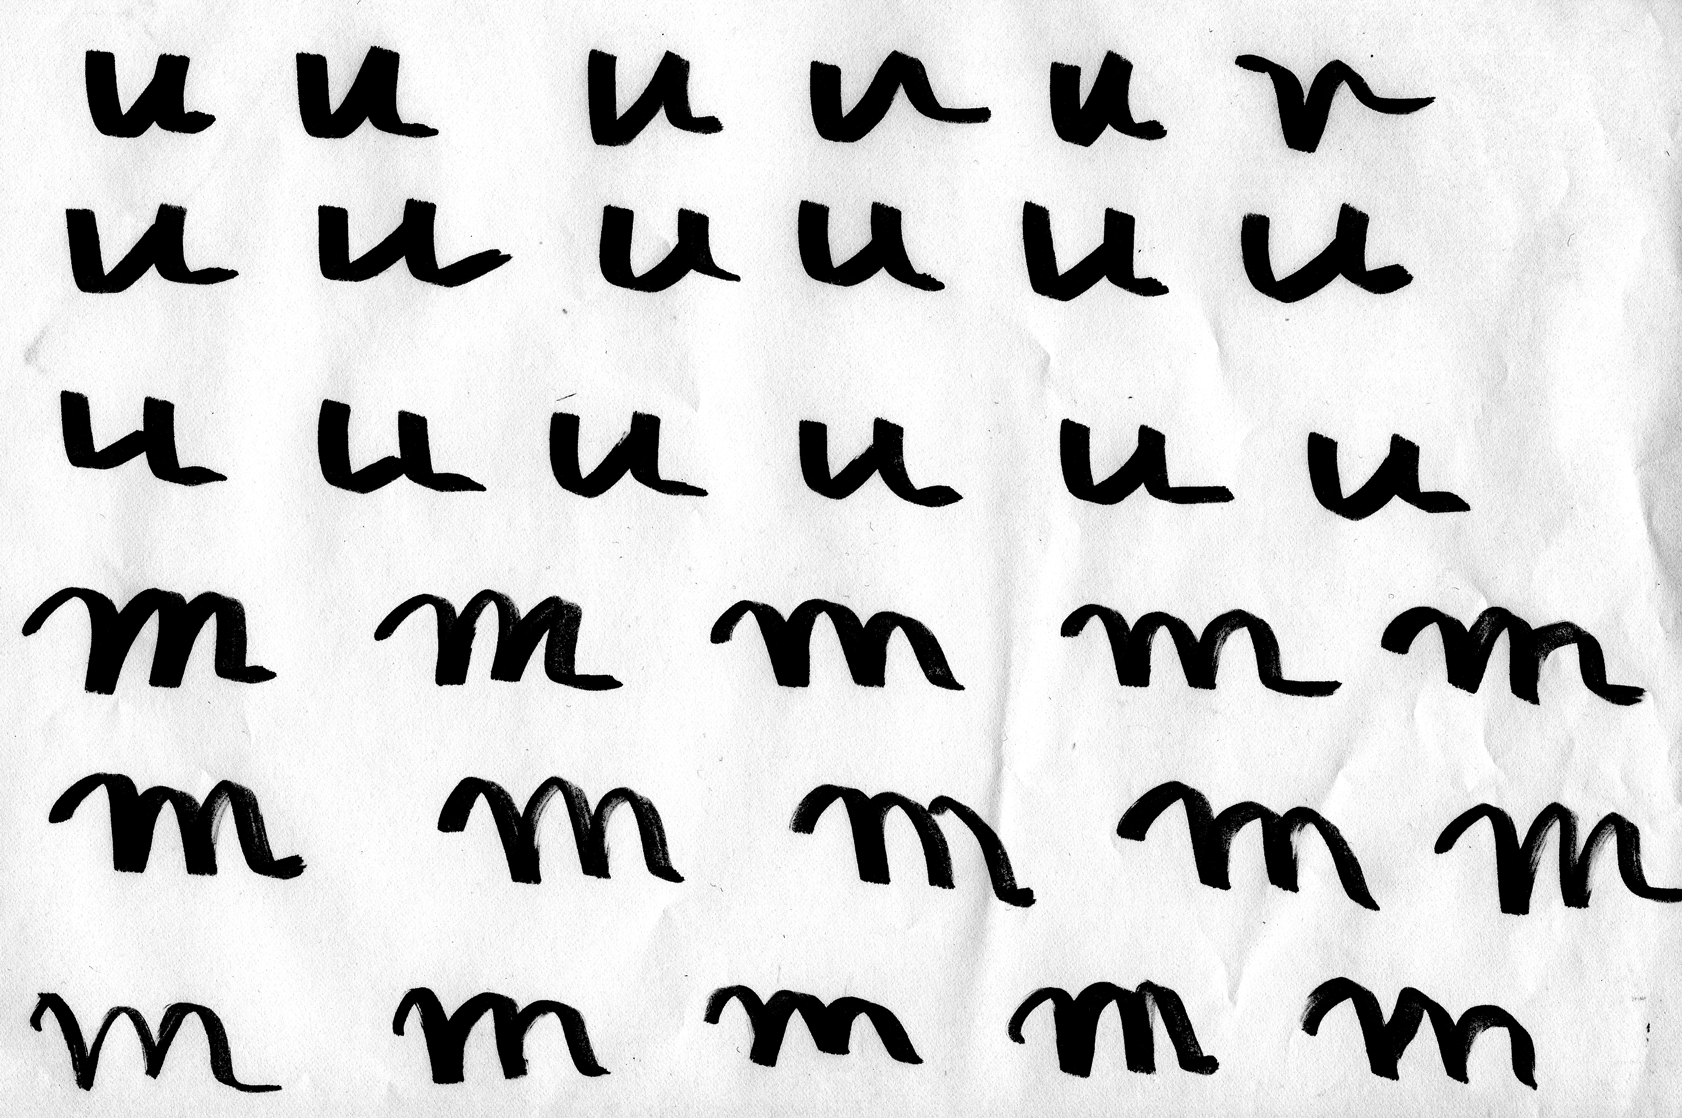 u u u u u r
u u u u u u
u u u u u u
m m m m m
m m m m m
m m m m m